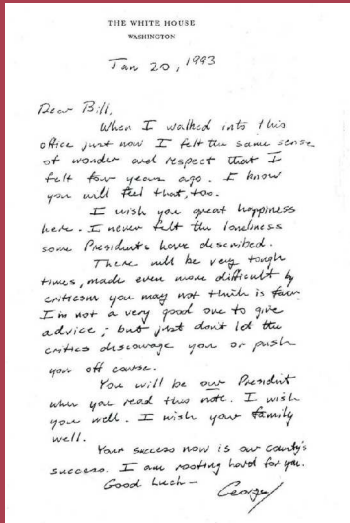 THE WHITE HOUSE
WASHINGTON
Jan 20, 1993
Dear Bill,
When I walked into this
office just now I felt the same sense
of wonder and respect that I
felt four years ago. I know
you will feel that, too.
I wish you great happiness
here. I never felt the loneliness
some Presidents have described.
There will be very tough
times, made even more difficult by
criticism you may not think is fair.
I'm not a very good one to give
advice; but just don't let the
critics discourage you or push
you off course.
You will be our President
when you read this note. I wish
you well. I wish your family
well.
Your success now is our country's
success. I am rooting hard for you.
Good Luck –
George